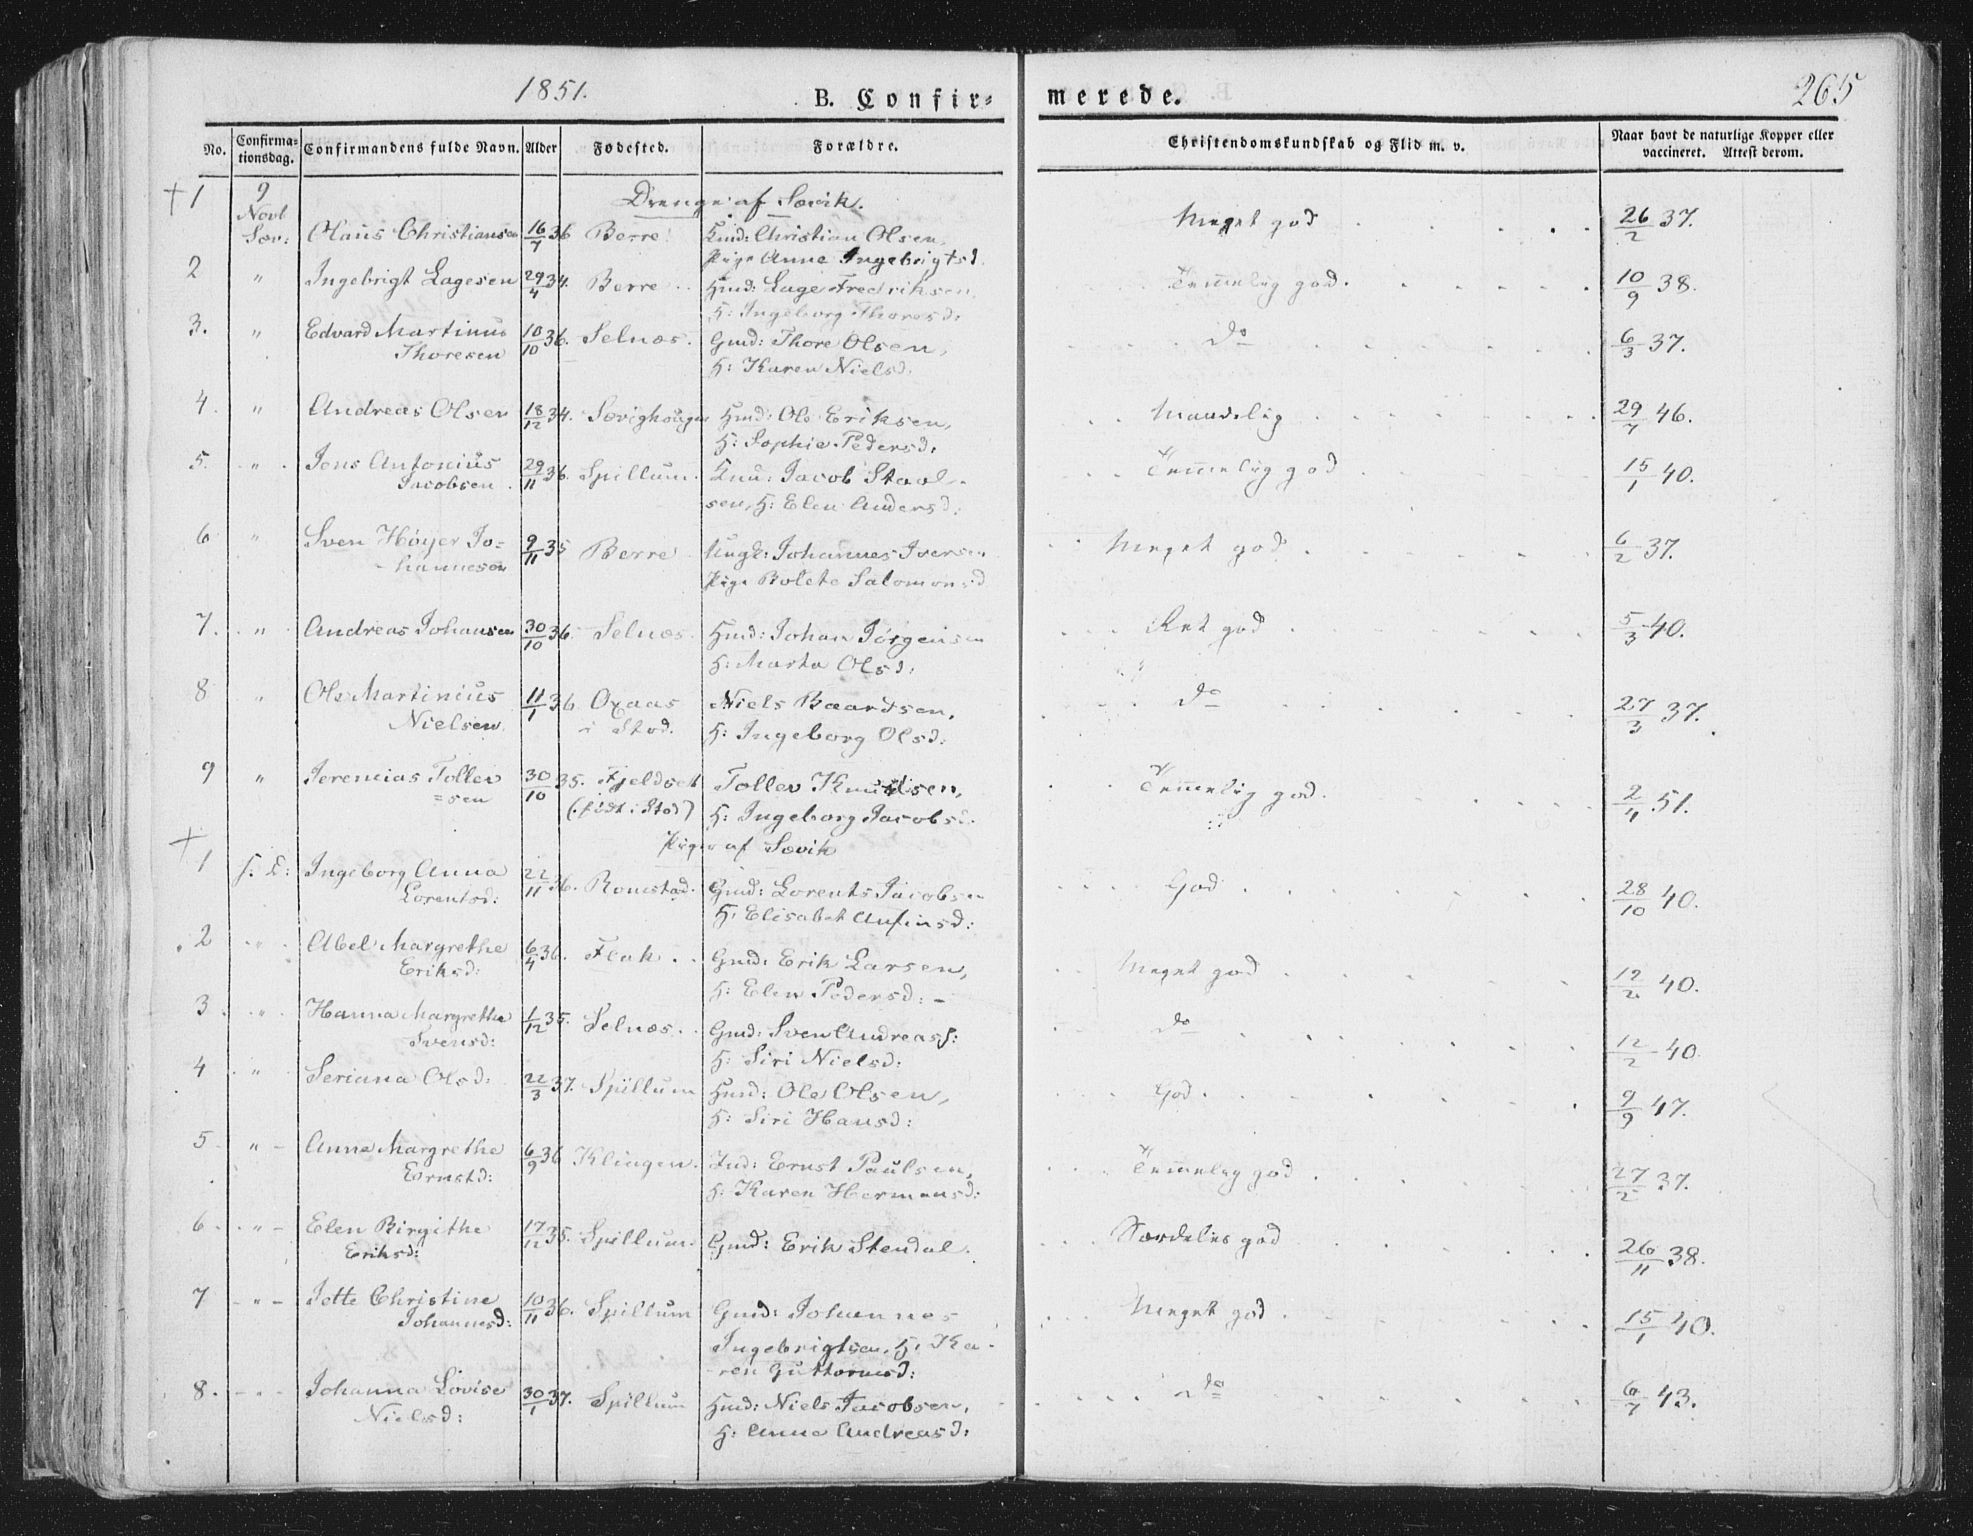 1851.
B. Confir=
merede.
265
No.
Confirma=
tionsdag.
Confirmandens fulde Navn.
Alder
Fødested.
Forældre.
Christendomskundskab og Flid m. v.
Naar havt de naturlige Kopper eller
vaccineret. Attest derom.
Drenge af Sævik.
+ 1 9 Novb Sæv: Olaus Christiansen 16/7 36 Berre. Christian Olsen, Meget god 26/2 37.
Pige Anne Ingebrigtsd.
2 " Ingebrigt Lagesen 29/4 34. Berre Hmd: Lage Fredriksen, Temmelig god. 10/9 38.
H: Ingeborg Thoresd:
3. " Edvard Martinus 10/10 36. Selnæs. Gmd: Thore Olsen, do 6/3 37.
Thoresen H: Karen Nielsd.
4. " Andreas Olsen 18/12 34. Sævighougen Hmd: Ole Eriksen, Maadelig 29/7 46.
H: Sophie Pedersd:
5. " Jens Antonius 29/11 36. Spillum. Jacob Staal- Temmelig god 15/1 40.
Jacobsen sen, H: Elen Andersd:
6 " Sven Høyer Jo= 9/11 35 Berre Ungk: Johannes Iversen Meget god 6/2 37.
hannesen Pige Bolete Salomonsd
7. " Andreas Johansen 30/10 36. Selnæs. Hmd: Johan Jørgensen Ret god 5/3 40.
H: Marta Olsd:
8 " Ole Martinius 11/1 36. Oxaas Niels Baardsen, do 27/3 37.
Nielsen i Stod. H: Ingeborg Olsd:
9 " Jeremias Tollev 30/10 35. Fjeldset Tollev Knudsen, Temmelig god. 2/4 51.
=sen (født i Stod) H: Ingeborg Jacobsd.
Piger af Sævik
+ 1 s. D: Ingeborg Anna 22/11 36. Romstad. Gmd: Lorents Jacobsen God 28/10 40.
Lorentsd: H: Elisabet Anfinsd:
2 " Abel Margrethe 6/4 36. Flak Gmd: Erik Larsen, Meget god 12/2 40.
Eriksd: H: Elen Pedersd:
3 " Hanna Margrethe 1/12 35. Selnæs. Gmd: Sven Andreass: do 12/2 40.
Svensd: H: Siri Nielsd:
4 " Seriana Olsd: 22/3 37. Spillum Hmd: Ole Olsen, God 9/9 47.
H: Siri Hansd:
5 " Anne Margrethe 6/9 36 Klingen. Ind: Ernst Paulsen, Temmelig god 27/2 37.
Ernstd: H: Karen Hermansd:
6 " Elen Birgithe 17/12 35. Spillum. Gmd: Erik Stendal. Særdeles god 26/11 38.
Eriksd:
7 " Jette Christine 10/11 36. Spillum Gmd: Johannes Meget god 15/1 40.
Johannesd: Ingebrigtsen, H: Ka-
ren Guttormsd:
8. " Johanna Lovise 30/1 37. Spillum Hmd: Niels Jacobsen, do 6/7 43.
Nielsd: H: Anna Andreasd: